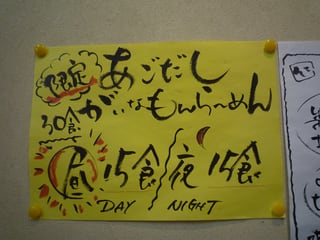 限定
あごだし
30食
がいなもんらーめん
昼15食/夜15食
DAY NIGHT